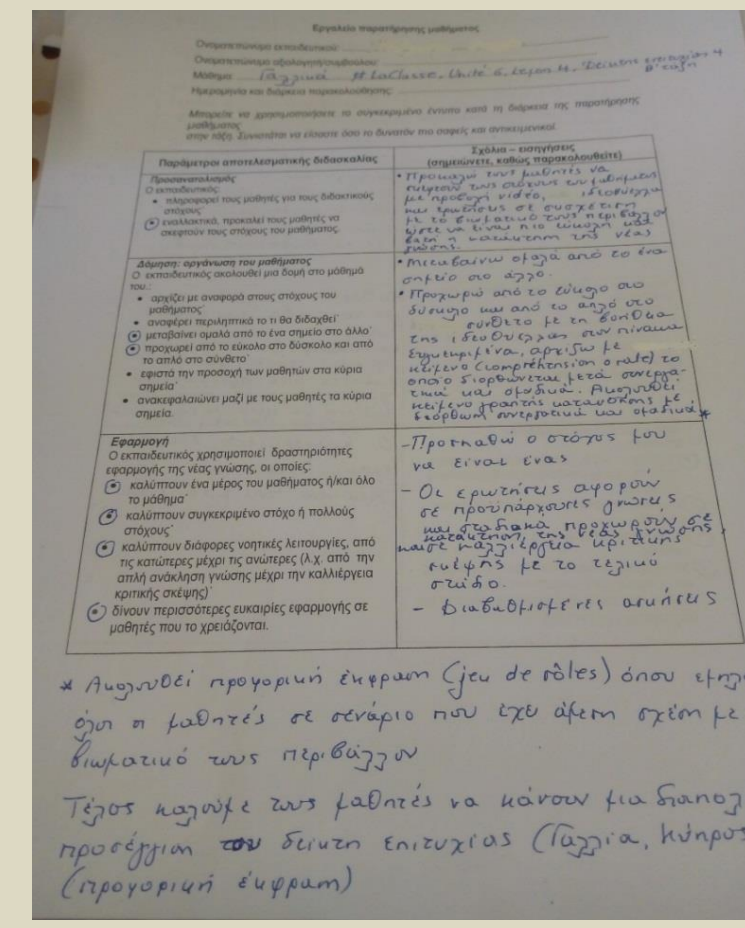 Εργαλείο παρατήρησης μαθήματος
Ονοματεπώνυμο εκπαιδευτικού:
Ονοματεπώνυμο αξιολογητή/συμβούλου:
Μάθημα: Γαλλικά # LaClasse, Unité 6, Leçon 4, Δείκτης επιτυχίας 4
Β' τάξη
Ημερομηνία και διάρκεια παρακολούθησης:
Μπορείτε να χρησιμοποιήσετε το συγκεκριμένο έντυπο κατά τη διάρκεια της παρατήρησης
μαθήματος
στην τάξη. Συνιστάται να είσαστε όσο το δυνατόν πιο σαφείς και αντικειμενικοί.
Παράμετροι αποτελεσματικής διδασκαλίας
Σχόλια – εισηγήσεις
(σημειώνετε, καθώς παρακολουθείτε)
Προσανατολισμός
Ο εκπαιδευτικός:
• πληροφορεί τους μαθητές για τους διδακτικούς
στόχους˙
• εναλλακτικά, προκαλεί τους μαθητές να
σκεφτούν τους στόχους του μαθήματος.
• Προκαλώ τους μαθητές να
σκεφτούν τους στόχους του μαθήματος
με προβολή video, ιδεοθύελλα
και ερωτήσεις σε συσχέτιση
με το βιωματικό τους περιβάλλον
ώστε να είναι πιο εύκολη και
η κατάκτηση της νέας
γνώσης.
Δόμηση: οργάνωση του μαθήματος
Ο εκπαιδευτικός ακολουθεί μια δομή στο μάθημά
του.:
• αρχίζει με αναφορά στους στόχους του
μαθήματος˙
• αναφέρει περιληπτικά το τι θα διδαχθεί˙
• μεταβαίνει ομαλά από το ένα σημείο στο άλλο˙
• προχωρεί από το εύκολο στο δύσκολο και από
το απλό στο σύνθετο˙
• εφιστά την προσοχή των μαθητών στα κύρια
σημεία˙
• ανακεφαλαιώνει μαζί με τους μαθητές τα κύρια
σημεία.
• Μεταβαίνω ομαλά από το ένα
σημείο στο άλλο.
• Προχωρώ από το εύκολο στο
δύσκολο και από το απλό στο
σύνθετο με τη βοήθεια
της ιδεοθύελλας στον πίνακα
Συγκεκριμένα, αρχίζω με
κείμενο (compréhension orale) το
οποίο διορθώνεται μετά συνεργα-
τικά και ομαδικά. Ακολουθεί
κείμενο γραπτής κατανόησης με
διόρθωση συνεργατικά και ομαδικά *
Εφαρμογή
Ο εκπαιδευτικός χρησιμοποιεί δραστηριότητες
εφαρμογής της νέας γνώσης, οι οποίες:
• καλύπτουν ένα μέρος του μαθήματος ή/και όλο
το μάθημα˙
• καλύπτουν συγκεκριμένο στόχο ή πολλούς
στόχους˙
• καλύπτουν διάφορες νοητικές λειτουργίες, από
τις κατώτερες μέχρι τις ανώτερες (λ.χ. από την
απλή ανάκληση γνώσης μέχρι την καλλιέργεια
κριτικής σκέψης)˙
• δίνουν περισσότερες ευκαιρίες εφαρμογής σε
μαθητές που το χρειάζονται.
- Προσπαθώ ο στόχος μου
να είναι ένας
- Οι ερωτήσεις αφορούν
σε προϋπάρχουσες γνώσεις
και σταδιακά προχωρούν σε
κατάκτηση της νέας γνώσης,
και σε καλλιέργεια κριτικής
σκέψης με το τελικό
στάδιο.
- Διαβαθμισμένες ασκήσεις
* Ακολουθεί προφορική έκφραση (jeu de rôles) όπου εμπλ
όλοι οι μαθητές σε σενάριο που έχει άμεση σχέση με
βιωματικό τους περιβάλλον
Τέλος καλούμε τους μαθητές να κάνουν μια διαπολ
προσέγγιση του δείκτη επιτυχίας (Γαλλία, Κύπρος
(προφορική έκφραση)